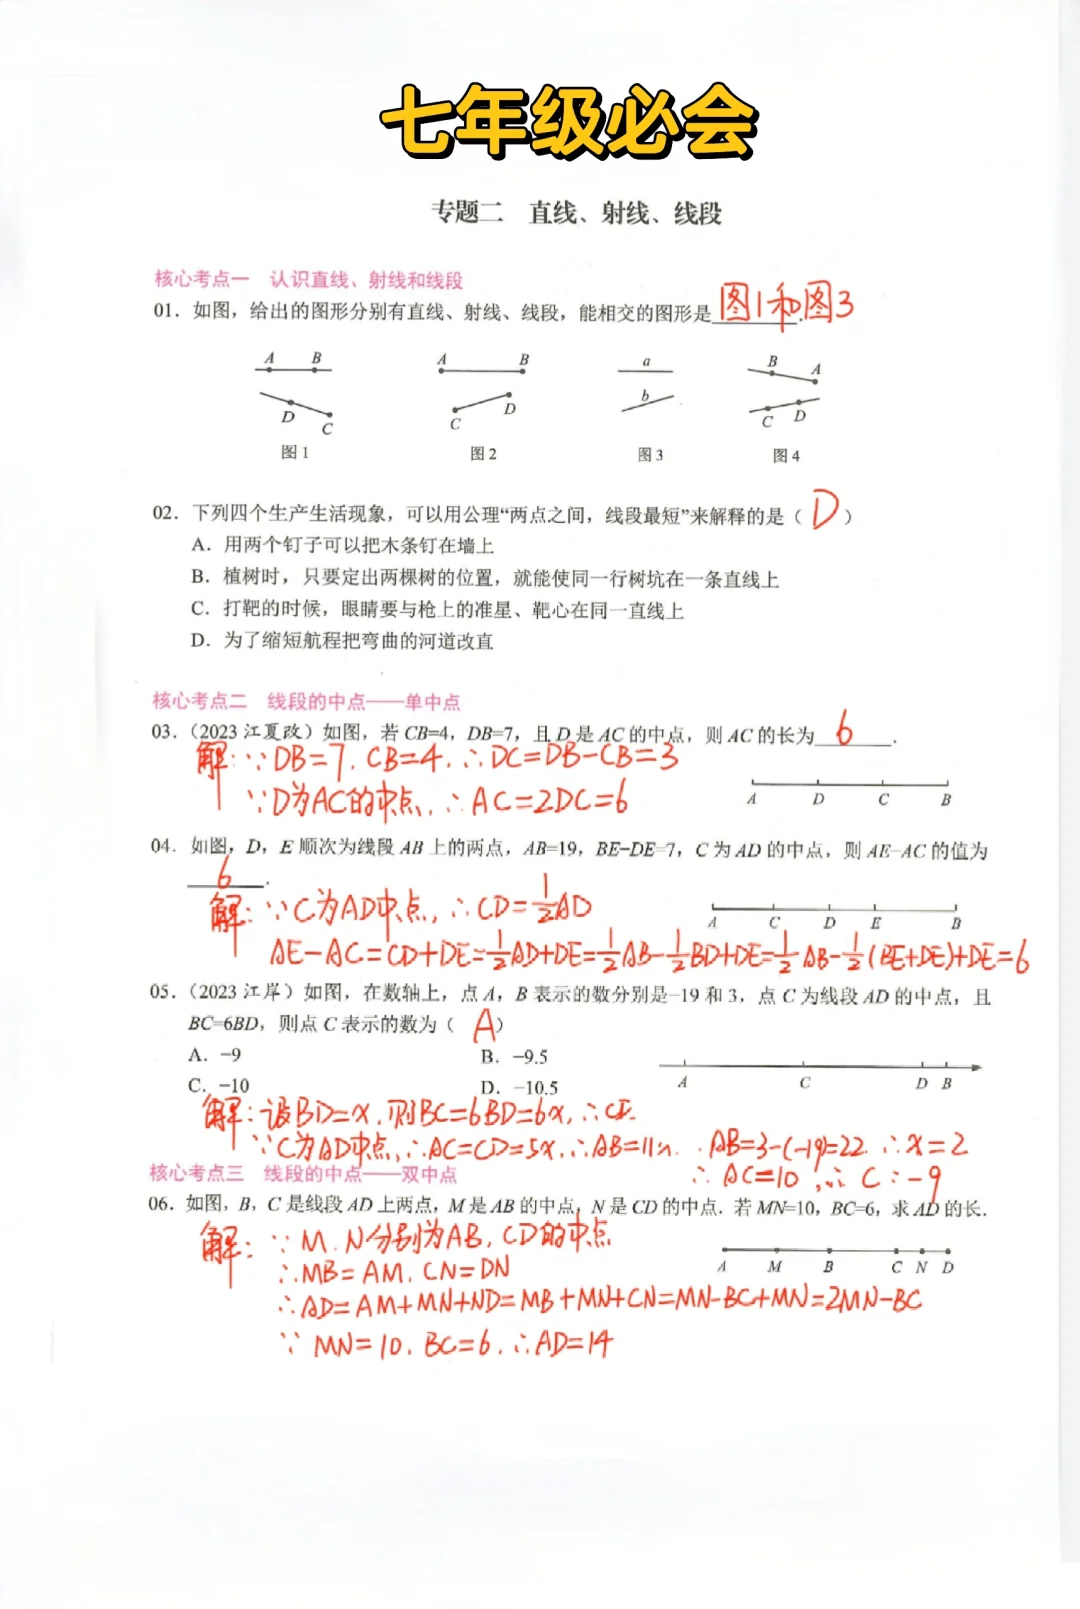 七年级必会
专题二 直线、射线、线段
核心考点一 认识直线、射线和线段
01. 如图，给出的图形分别有直线、射线、线段，能相交的图形是 图1和图3.
A B A B a B A
D C C D b C D
图1 图2 图3 图4
02. 下列四个生产生活现象，可以用公理“两点之间，线段最短”来解释的是（ D ）
A. 用两个钉子可以把木条钉在墙上
B. 植树时，只要定出两棵树的位置，就能使同一行树坑在一条直线上
C. 打靶的时候，眼睛要与枪上的准星、靶心在同一直线上
D. 为了缩短航程把弯曲的河道改直
核心考点二 线段的中点——单中点
03.（2023 江夏政）如图，若 CB=4，DB=7，且 D 是 AC 的中点，则 AC 的长为 6 .
解：∵DB=7. CB=4. ∴DC=DB-CB=3
∵D为AC的中点. ∴AC=2DC=6
A D C B
04. 如图，D，E 顺次为线段 AB 上的两点，AB=19，BE-DE=7，C 为 AD 的中点，则 AE-AC 的值为
6 .
解：∵C为AD中点，∴CD=1/2AD
A C D E B
AE-AC=CD+DE=1/2AD+DE=1/2AB-1/2BD+DE=1/2AB-1/2(BE+DE)+DE=6
05.（2023 江岸）如图，在数轴上，点 A，B 表示的数分别是-19 和 3，点 C 为线段 AD 的中点，且
BC=6BD，则点 C 表示的数为（ A ）
A. -9 B. -9.5
C. -10 D. -10.5
A C D B
解：设BD=x，则BC=6BD=6x，∴CD
∵C为AD中点，∴AC=CD=5x，∴AB=11x. AB=3-(-19)=22. ∴x=2
∴AC=10，∴C：-9
核心考点三 线段的中点——双中点
06. 如图，B，C 是线段 AD 上两点，M 是 AB 的中点，N 是 CD 的中点．若 MN=10，BC=6，求 AD 的长.
解：∵M.N分别为AB，CD的中点
A M B C N D
∴MB=AM，CN=DN
∴AD=AM+MN+ND=MB+MN+CN=MN-BC+MN=2MN-BC
∵MN=10，BC=6，∴AD=14